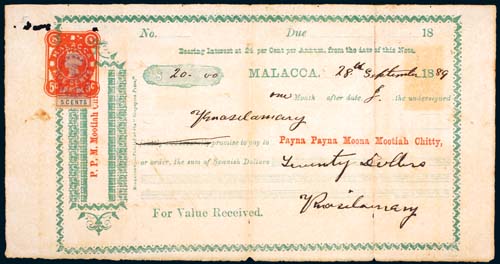 No. Due 18
Bearing Interest at 24 per Cent per Annum, from the date of this Note.
$ 20-00 MALACCA. 28th September 1889
one Month after date I the undersigned
promise to pay to Payna Payna Moona Mootiah Chitty,
or order, the sum of Spanish Dollars Twenty Dollars
For Value Received.
MALACCA
5 CENTS
P. P. M. Mootiah Chitty